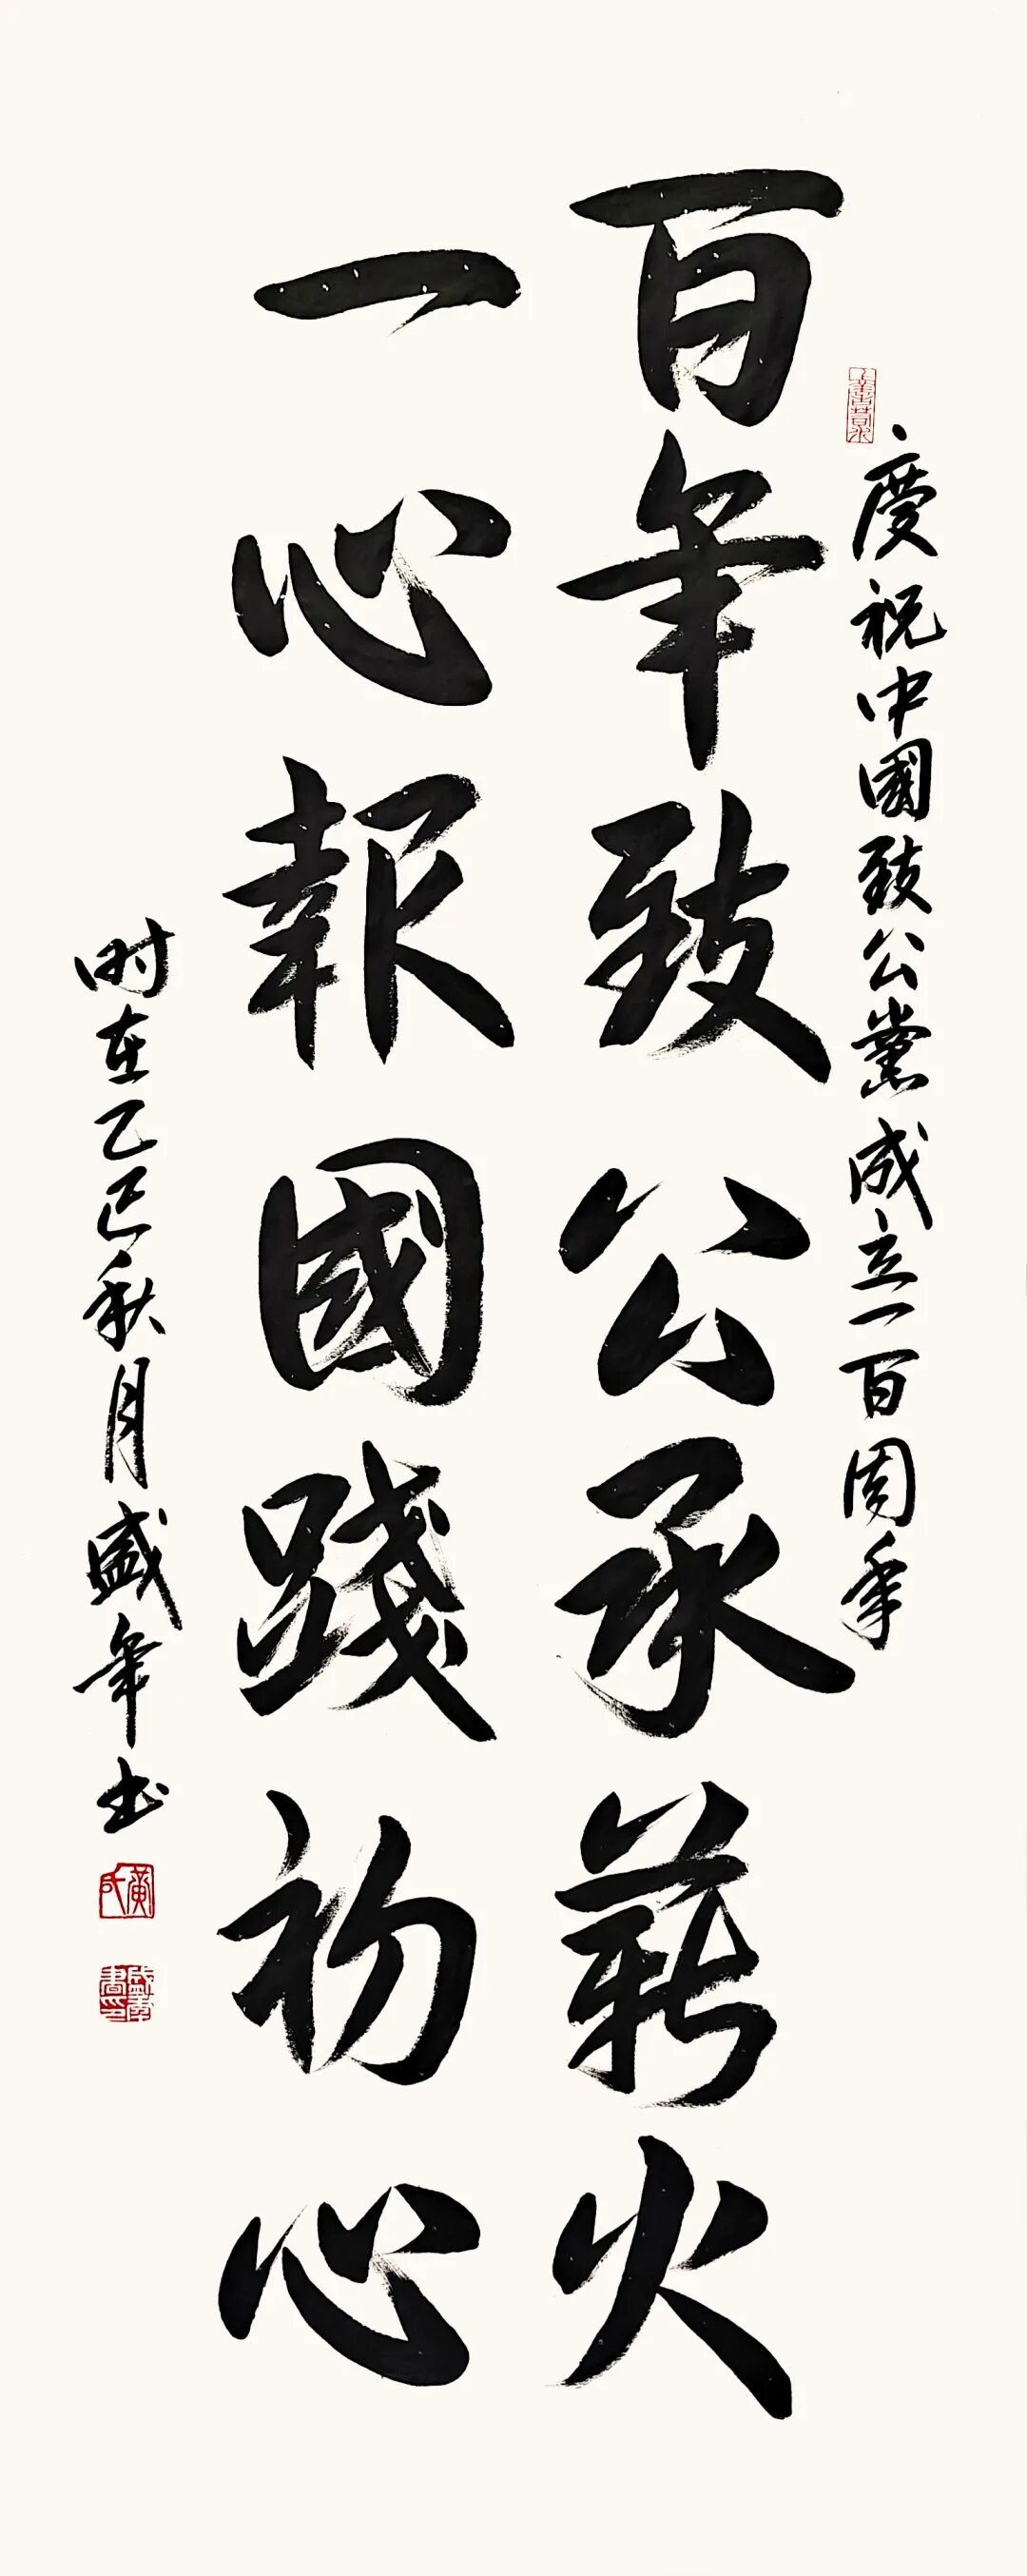 慶祝中國致公黨成立一百周年
百年致公承薪火
一心報國踐初心
时在乙巳秋月盛年书